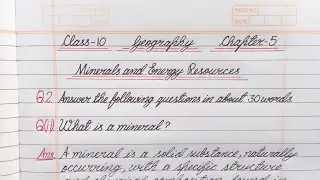 Class-10 Geography Chapter-5
Minerals and Energy Resources
Q2. Answer the following questions in about 30 words.
Q(i) What is a mineral?
Ans. A mineral is a solid substance, naturally
occurring, with a specific structure